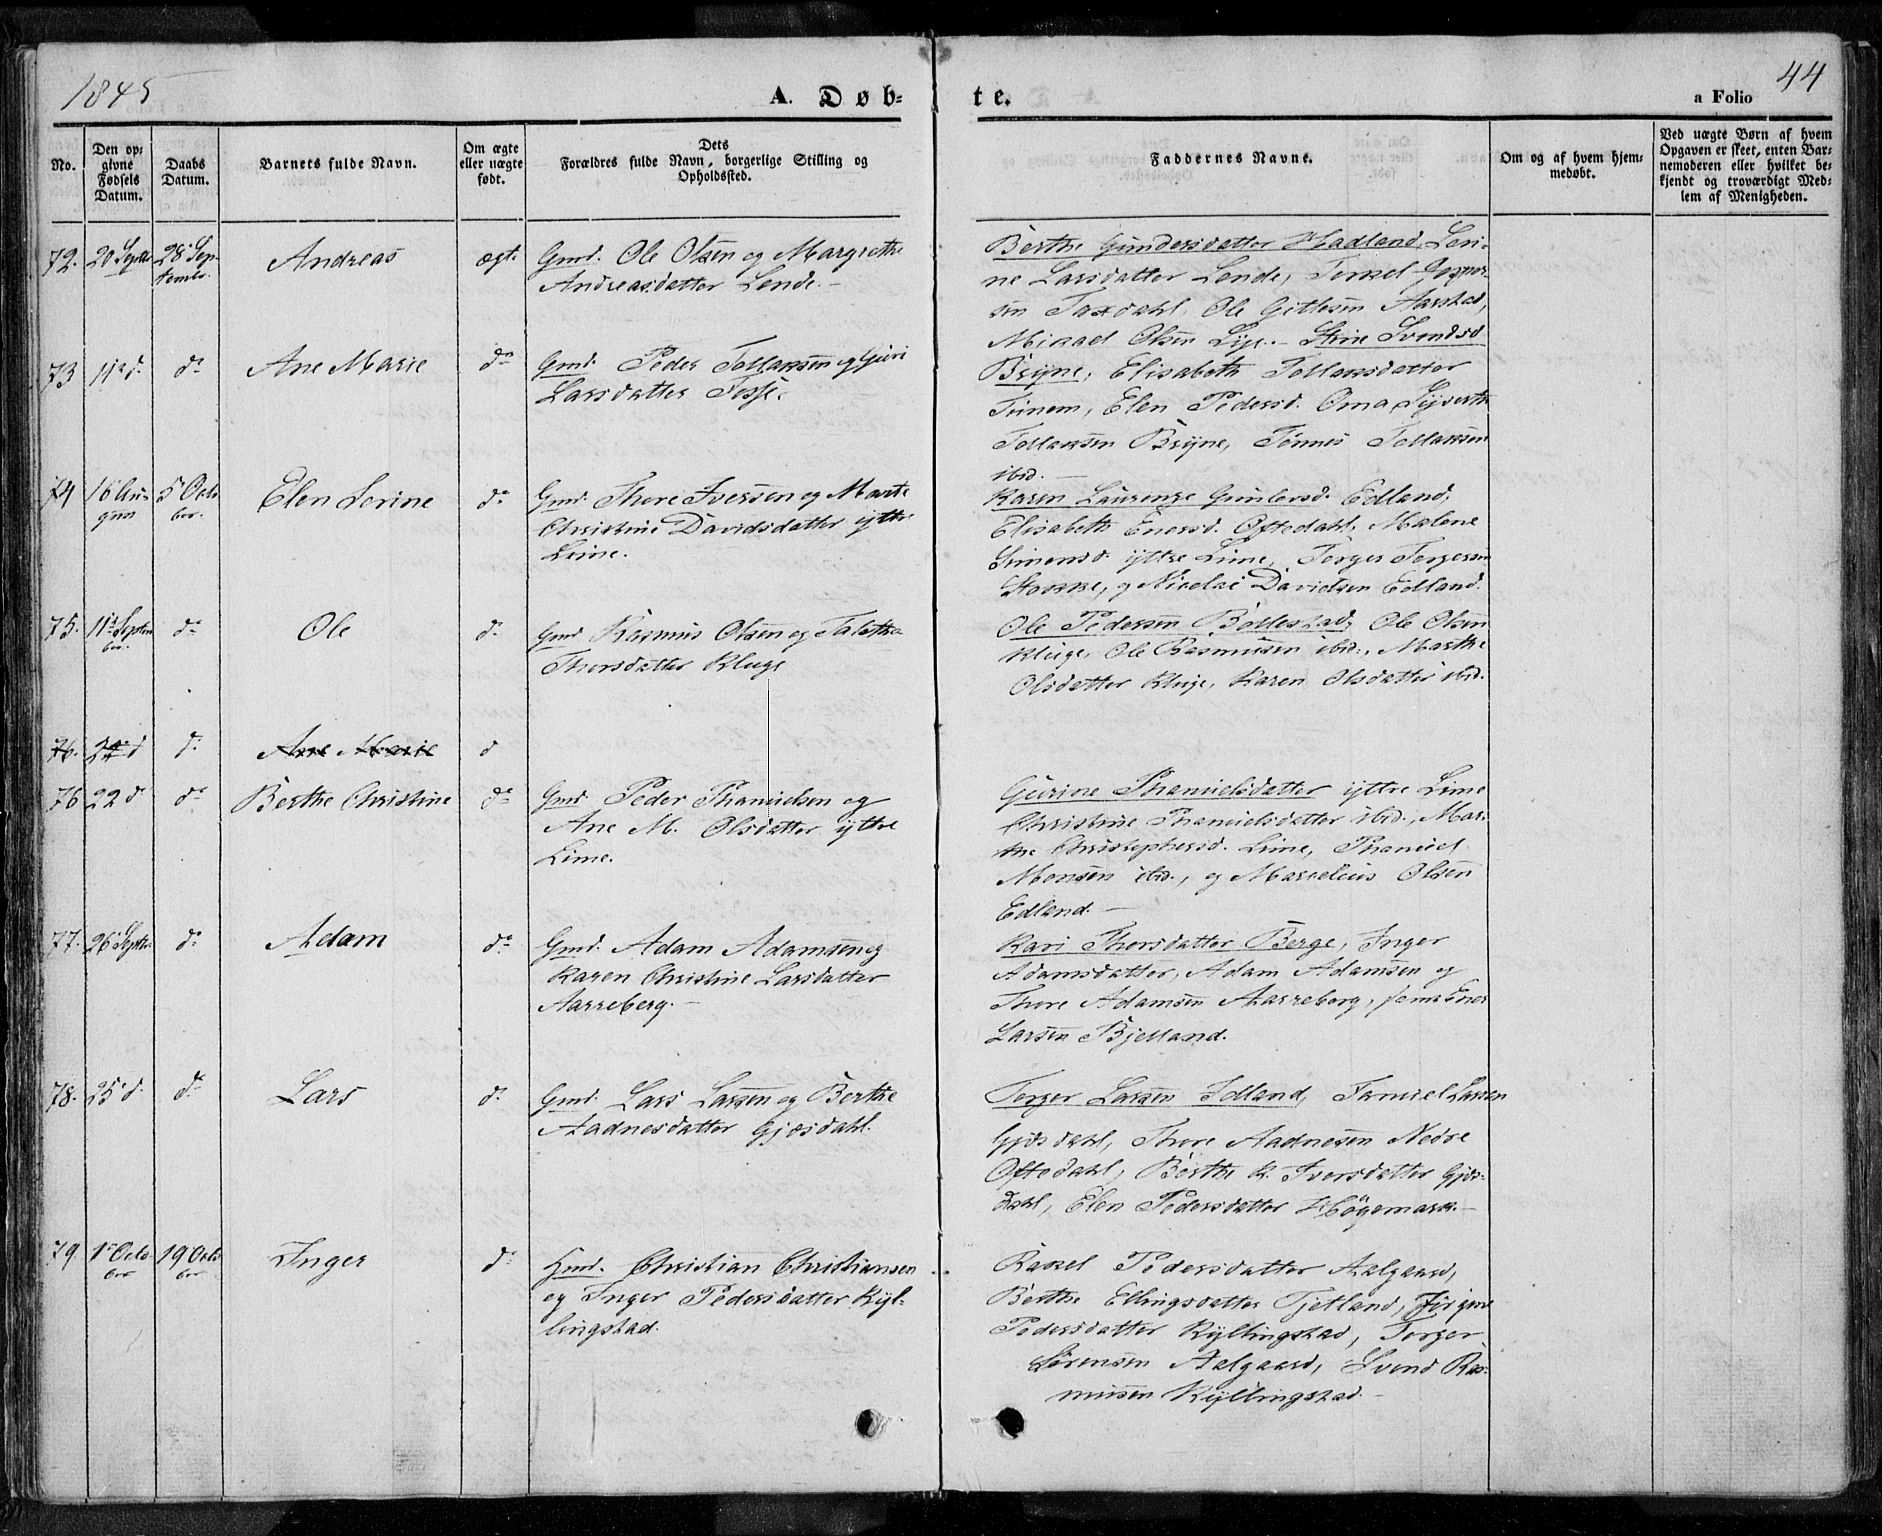 1845
A. Døb=
te.
a Folio
44
No.
Den op=
givne
Fødsels
Datum.
Daabs
Datum.
Barnets fulde Navn.
Om ægte
eller uægte
født.
Dets
Forældres fulde Navn, borgerlige Stilling og
Opholdssted.
Faddernes Navne.
Om og af hvem hjem=
medøbt.
Ved uægte Børn af hvem
Opgaven er skeet, enten Bar=
nemoderen eller hvilket be=
kjendt og troværdigt Med=
lem af Menigheden.
72. 20 Septbr 28 Sep
tembr.
Andreas
ægte
Gmd. Ole Olsen og Margrethe
Andreasdatter Lende. —
Berthe Gundersdatter Hadland, Seri-
ne Larsdatter Lende, Torkel Jesper-
sen Taxdahl, Ole Gitlesen Aarstad,
Mikael Olsen Lye. —
73 11 d. d.
Ane Marie
do
Gmd. Peder Tollaksen og Guri
Larsdatter Fosse.
Stine Svendsd
Bryne, Elisabeth Tollaksdatter
Tunem, Elen Pedersd. Oma, Syverth
Tollaksen Bryne, Tønnes Tollaksen
ibid. —
74 16 Au-
gust
5 Octo
ber.
Elen Serine
do
Gmd. Thore Iversen og Marte
Christine Davidsdatter yttre
Lime.
Karen Laurenze Gunlersd. Edland,
Elisabeth Enersd. Oftedahl, Malene
Simonsd. yttre Lime, Torger Torgersen
Stokke, og Nicolai Davidsen Edland.
75. 11 Septem
ber.
do
Ole
d.
Gmd Rasmus Olsen og Talethe
Thorsdatter Kluge
Ole Pedersen Bollestad, Ole Olsen
Kluge, Ole Rasmusen ibid., Marthe
Olsdatter Kluge, Karen Olsdatter ibid.
76. 24 d d. Ane Marie d
76 22 d do Berthe Christine do
Gmd. Peder Thamielsen og
Ane M. Olsdatter yttre
Lime.
Gurine Thamielsdatter yttre Lime
Christine Thamielsdatter ibid., Mar-
the Christophersd. Lime, Thamiel
Monsen ibid., og Marselius Olsen
Edland. —
77. 26 Septbr do
Adam
do
Gmd. Adam Adamsen og
Karen Christine Larsdatter
Aarreberg. —
Kari Thorsdatter Berge, Inger
Adamsdatter, Adam Adamsen og
Thore Adamsen Aarreberg, samt Ener
Larsen Bjelland.
78. 25 d. do
Lars
d.
Gmd. Lars Larsen og Berthe
Aadnesdatter Gjesdahl.
Torger Larsen Edland, Tamiel Larsen
Gjesdahl, Thore Aadnesen Nedre
Oftedahl, Berthe K. Iversdatter Gjes-
dahl, Elen Pedersdatter Høgemark. —
79. 1 Octo
ber
19 Octo
ber
Inger
d.
Hmd. Christian Christiansen
og Inger Pedersdatter Kyl-
lingstad.
Rakel Pedersdatter Aalgaard,
Berthe Ellingsdatter Tjetland, Jørgine
Pedersdatter Kyllingstad, Torger
Sørensen Aalgaard, Svend Ras-
musen Kyllingstad. —